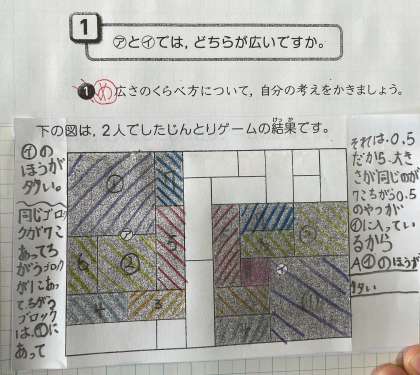 1
㋐と㋑では，どちらが広いですか。
❶ め 広さのくらべ方について，自分の考えをかきましょう。
下の図は，2人でしたじんとりゲームの結果です。
けっか
㋑の
ほうが
タい。
同じブロッ
クが7こ
あってち
がうブロック
が1こあっ
てちがう
ブロック
は㋑に
あって
それは0.5
だから大き
さが同じのが
7こちがう0.5
のやつが
㋑に入ってい
るから
A㋑のほうが
タい
㋐
㋑
5
6
2
4
3